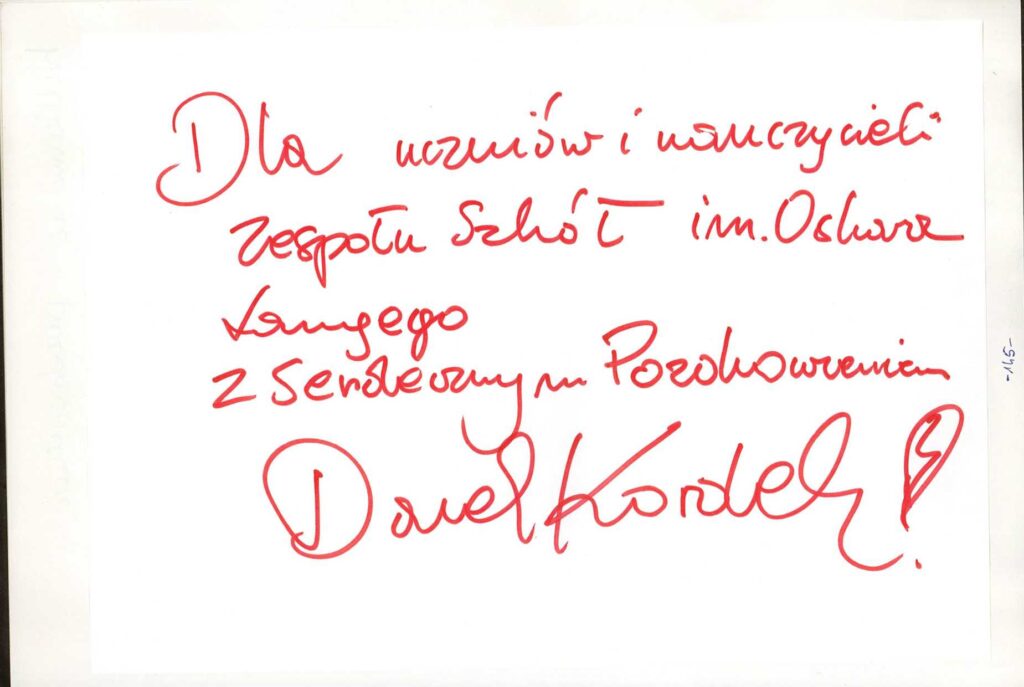 Dla uczniów i nauczycieli
Zespołu Szkół im. Oskara
Langego
z Serdecznym Pozdrowieniem
Darek Kordek!
-145-